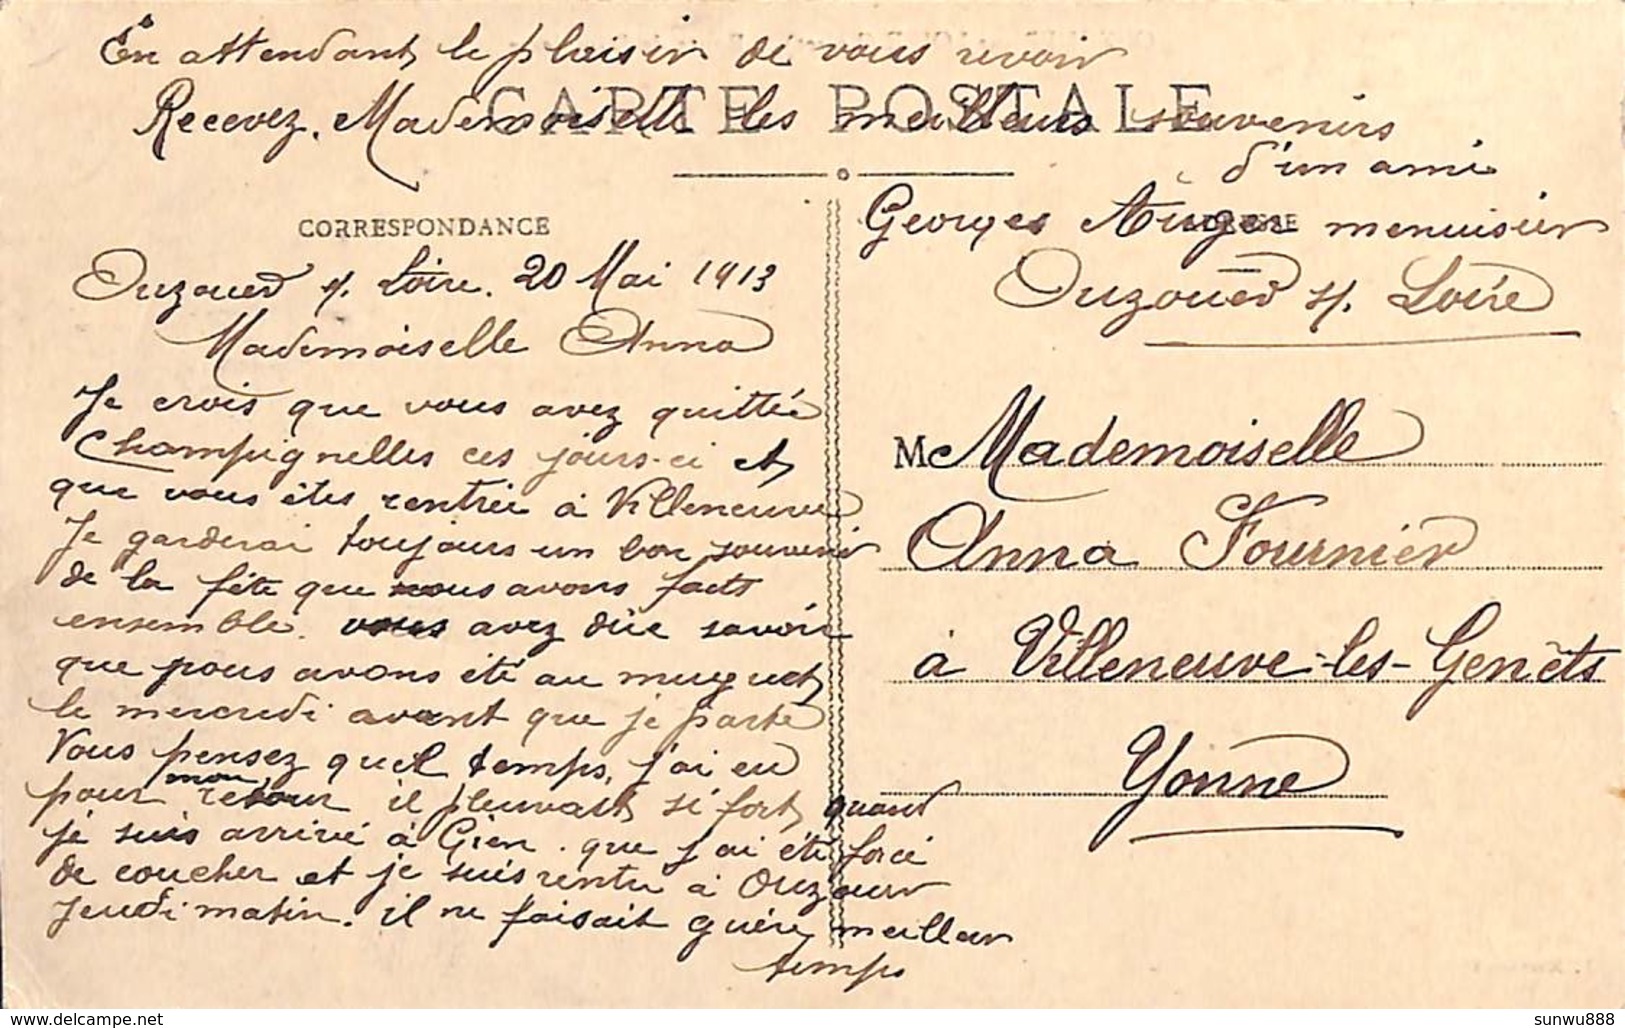 En attendant le plaisir de vous revoir
Recevez, Mademoiselle les meilleurs souvenirs
d'un ami
Georges Auger menuisier
Ouzouer s/. Loire
CARTE POSTALE
CORRESPONDANCE
Ouzouer s/. Loire. 20 Mai 1913
Mademoiselle Anna
Je crois que vous avez quittée
Champignelles ces jours-ci et
que vous êtes rentrée à Villeneuve
Je garderai toujours un bon souvenir
de la fête que nous avons faits
ensemble. vous avez dûe savoir
que nous avons été au muguet
le mercredi avant que je parte
Vous pensez quel temps, j'ai eu
pour mon retour il pleuvait si fort quand
je suis arrivé à Gien. que j'ai été forcé
de coucher et je suis rentré à Ouzouer
jeudi matin. il ne faisait guère meilleur
temps
M Mademoiselle
Anna Fournier
à Villeneuve-les-Genêts
Yonne
www.delcampe.net
sunwu888